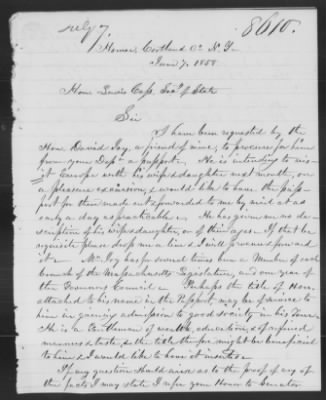 July 7
8610.
Homer, Cortland Co. N.Y.
June 7. 1858
Hon Lewis Cass, Secy of State
Sir
I have been requested by the
Hon. David Joy, a friend of mine, to procure for him
from your Dept a passport. He is intending to vis-
it Europe with his wife & daughter next month, on
a pleasure excursion, & would like to have the pass-
port for them made out & forwarded to me by mail at as
early a day as practicable. He has given me no de-
scription of his wife & daughter, or of their ages. If that be
requisite please drop me a line & I will procure & forward
it. Mr Joy has for several times been a Member of each
branch of the Massachusetts Legislature, and one year of
the Governors Council. Perhaps the title of Hon.
attached to his name in the Passport may be of service to
him in gaining admission to good society in his Tour.
He is a Gentleman of wealth, education, & of refined
manners & taste, & the title therefor might be beneficial
to him & I would like to have it inserted.
If any question should arise as to the proof of any of
the facts I may state I refer your Honor to Senator